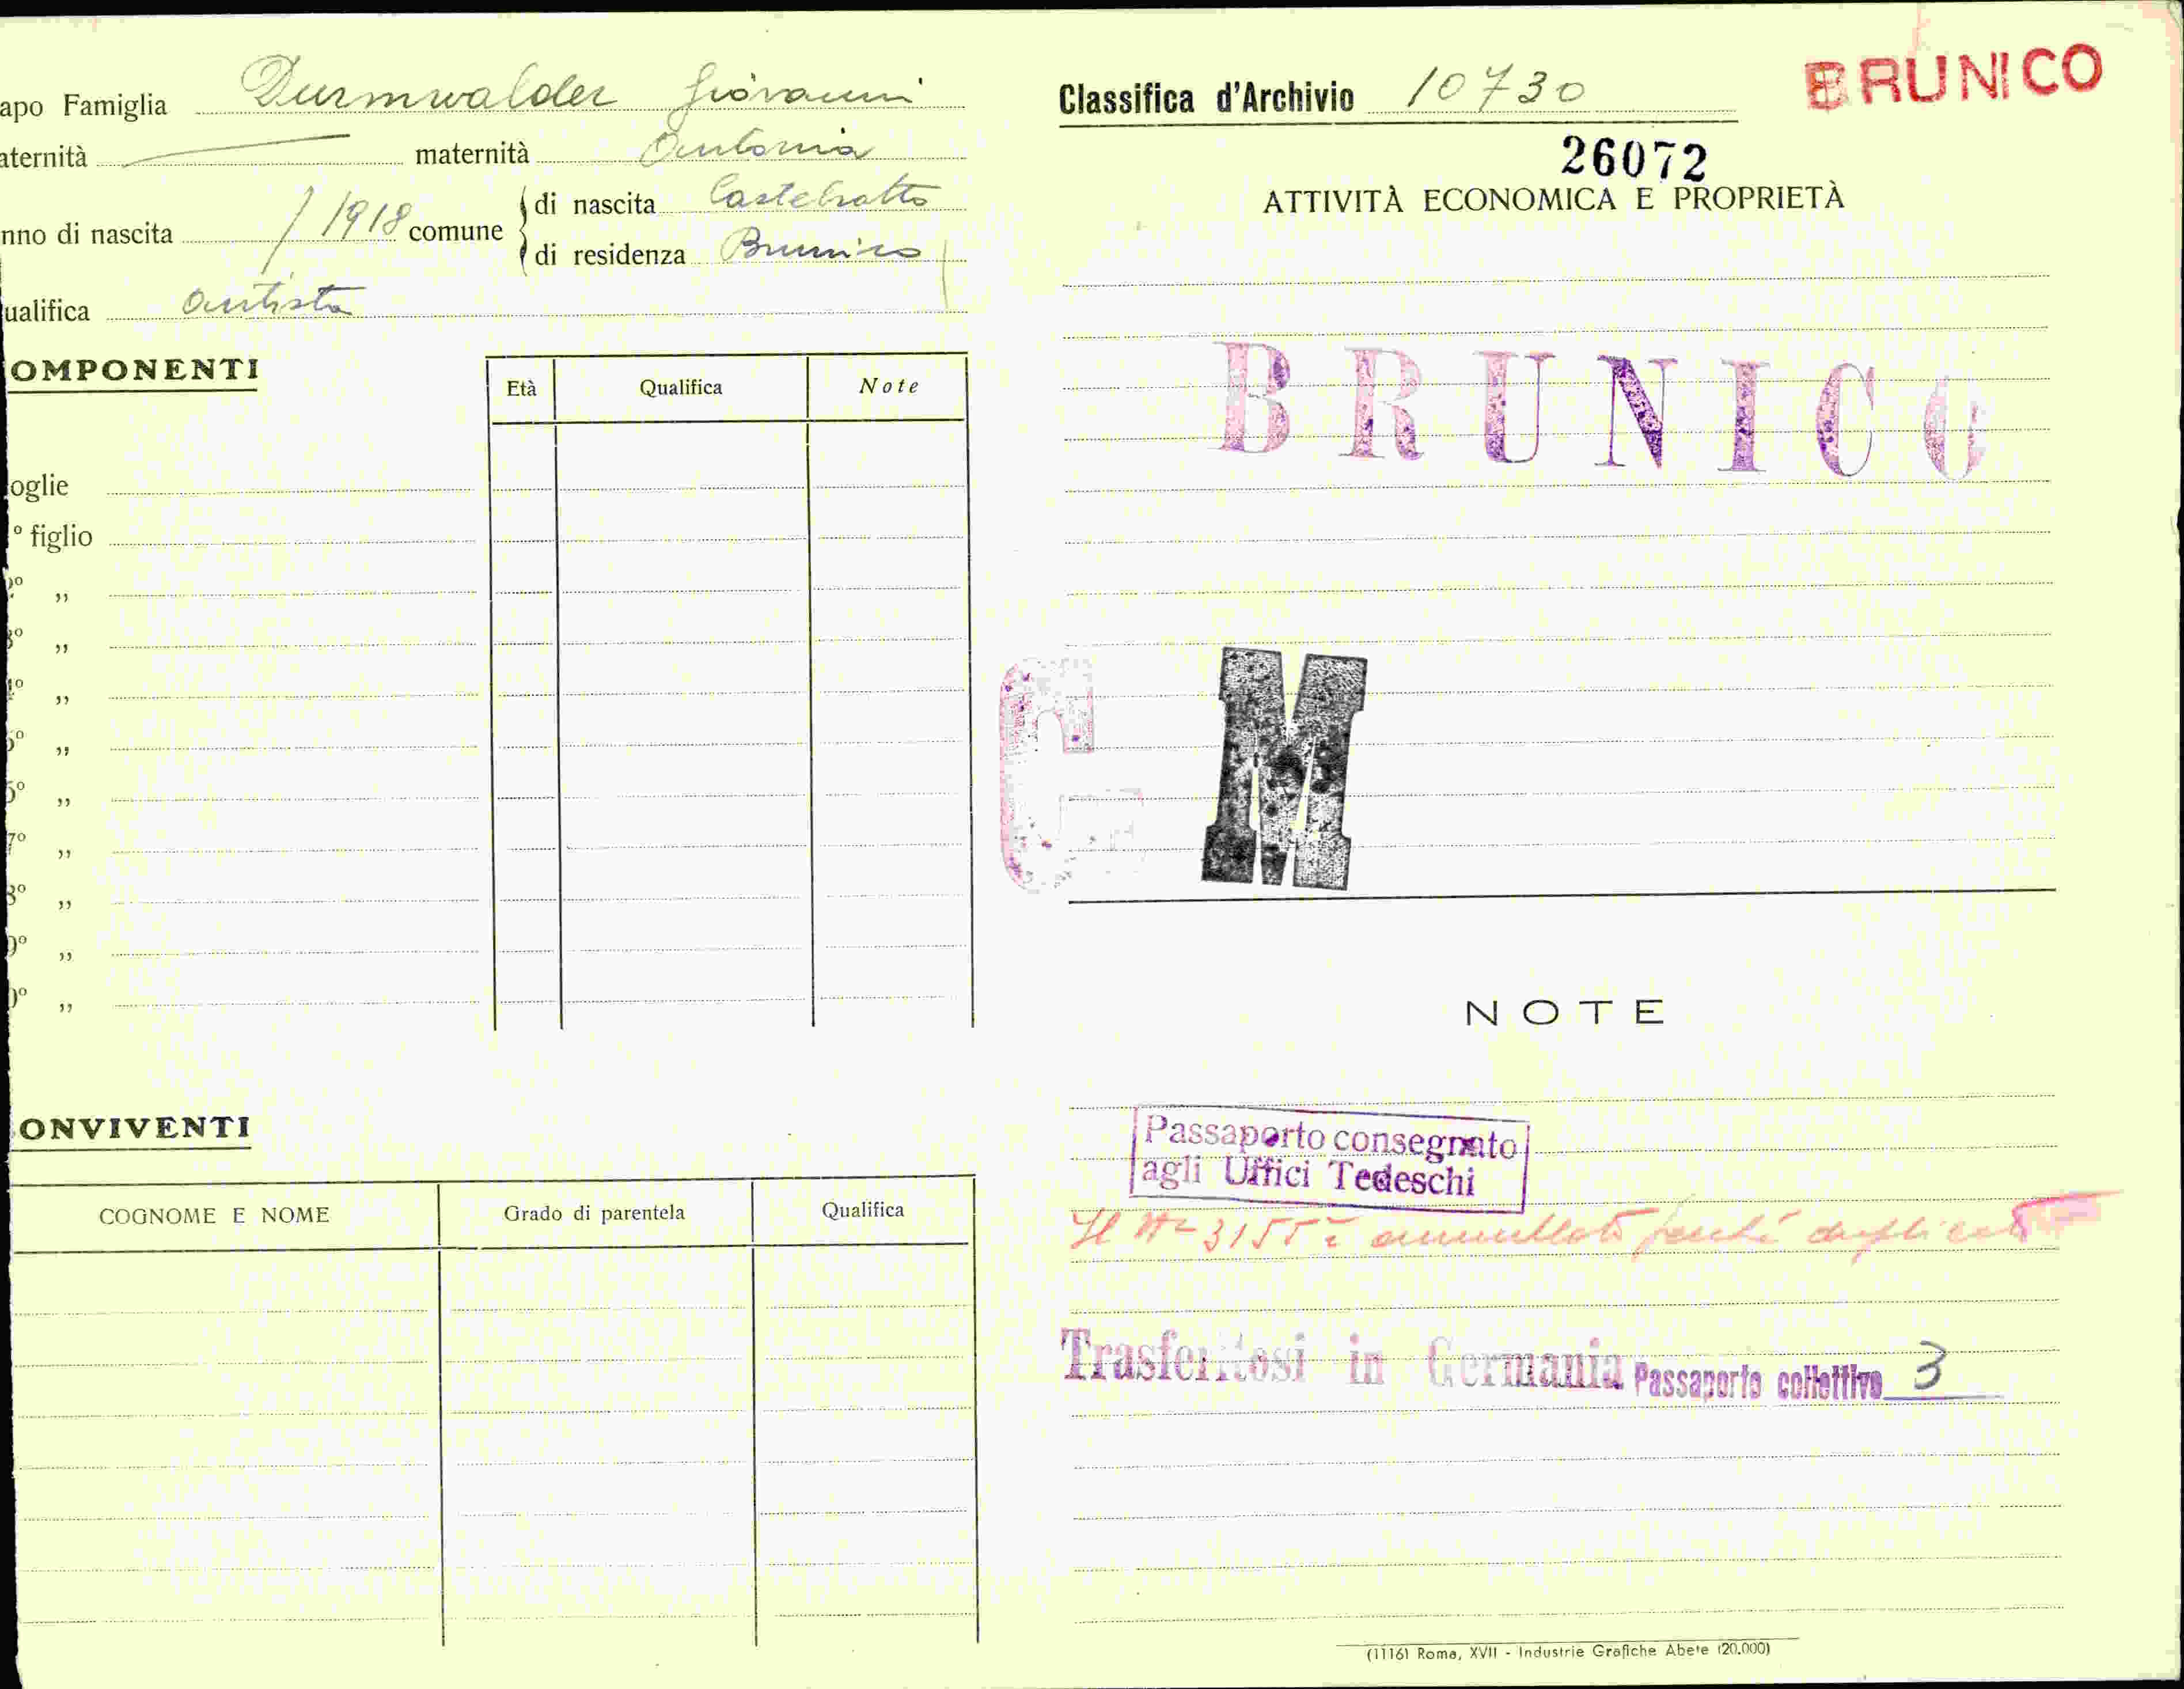 apo Famiglia Durnwalder Giovanni
aternità maternità Antonia
nno di nascita 1918 comune di nascita Castelrotto
di residenza Brunico
ualifica autista
OMPONENTI
Età Qualifica Note
oglie
° figlio
2° ,,
3° ,,
4° ,,
5° ,,
6° ,,
7° ,,
8° ,,
9° ,,
0° ,,
ONVIVENTI
COGNOME E NOME Grado di parentela Qualifica
Classifica d'Archivio 10730
BRUNICO
26072
ATTIVITÀ ECONOMICA E PROPRIETÀ
BRUNICO
C M
NOTE
Passaporto consegnato
agli Uffici Tedeschi
Il N= 3155 è annullato perché duplicato
Trasferitosi in Germania Passaporto collettivo 3
(1116) Roma, XVII - Industrie Grafiche Abete (20.000)